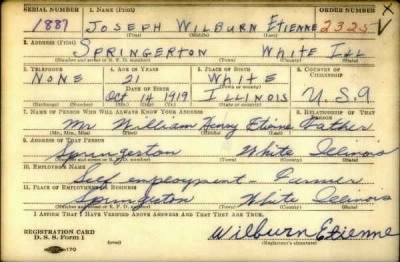 SERIAL NUMBER 1. NAME (Print) ORDER NUMBER
1887 JOSEPH WILBURN ETIENNE 2325 V
2. ADDRESS (Print)
SPRINGERTON WHITE ILL
3. TELEPHONE 4. AGE IN YEARS 5. PLACE OF BIRTH 6. COUNTRY OF CITIZENSHIP
NONE 21 WHITE
DATE OF BIRTH
Oct 14 1919 ILLINOIS U.S.A
(Exchange) (Number) (Mo.) (Day) (Yr.) (State or country)
7. NAME OF PERSON WHO WILL ALWAYS KNOW YOUR ADDRESS 8. RELATIONSHIP OF THAT PERSON
Mr William Henry Etienne Father
(Mr., Mrs., Miss) (First) (Middle) (Last)
9. ADDRESS OF THAT PERSON
Springerton White Illinois
(Town) (County) (State)
10. EMPLOYER'S NAME
Self employment - Farmer
11. PLACE OF EMPLOYMENT OR BUSINESS
Springerton White Illinois
(Town) (County) (State)
I AFFIRM THAT I HAVE VERIFIED ABOVE ANSWERS AND THAT THEY ARE TRUE.
REGISTRATION CARD
D. S. S. Form 1
Wilburn Etienne
(Registrant's signature)